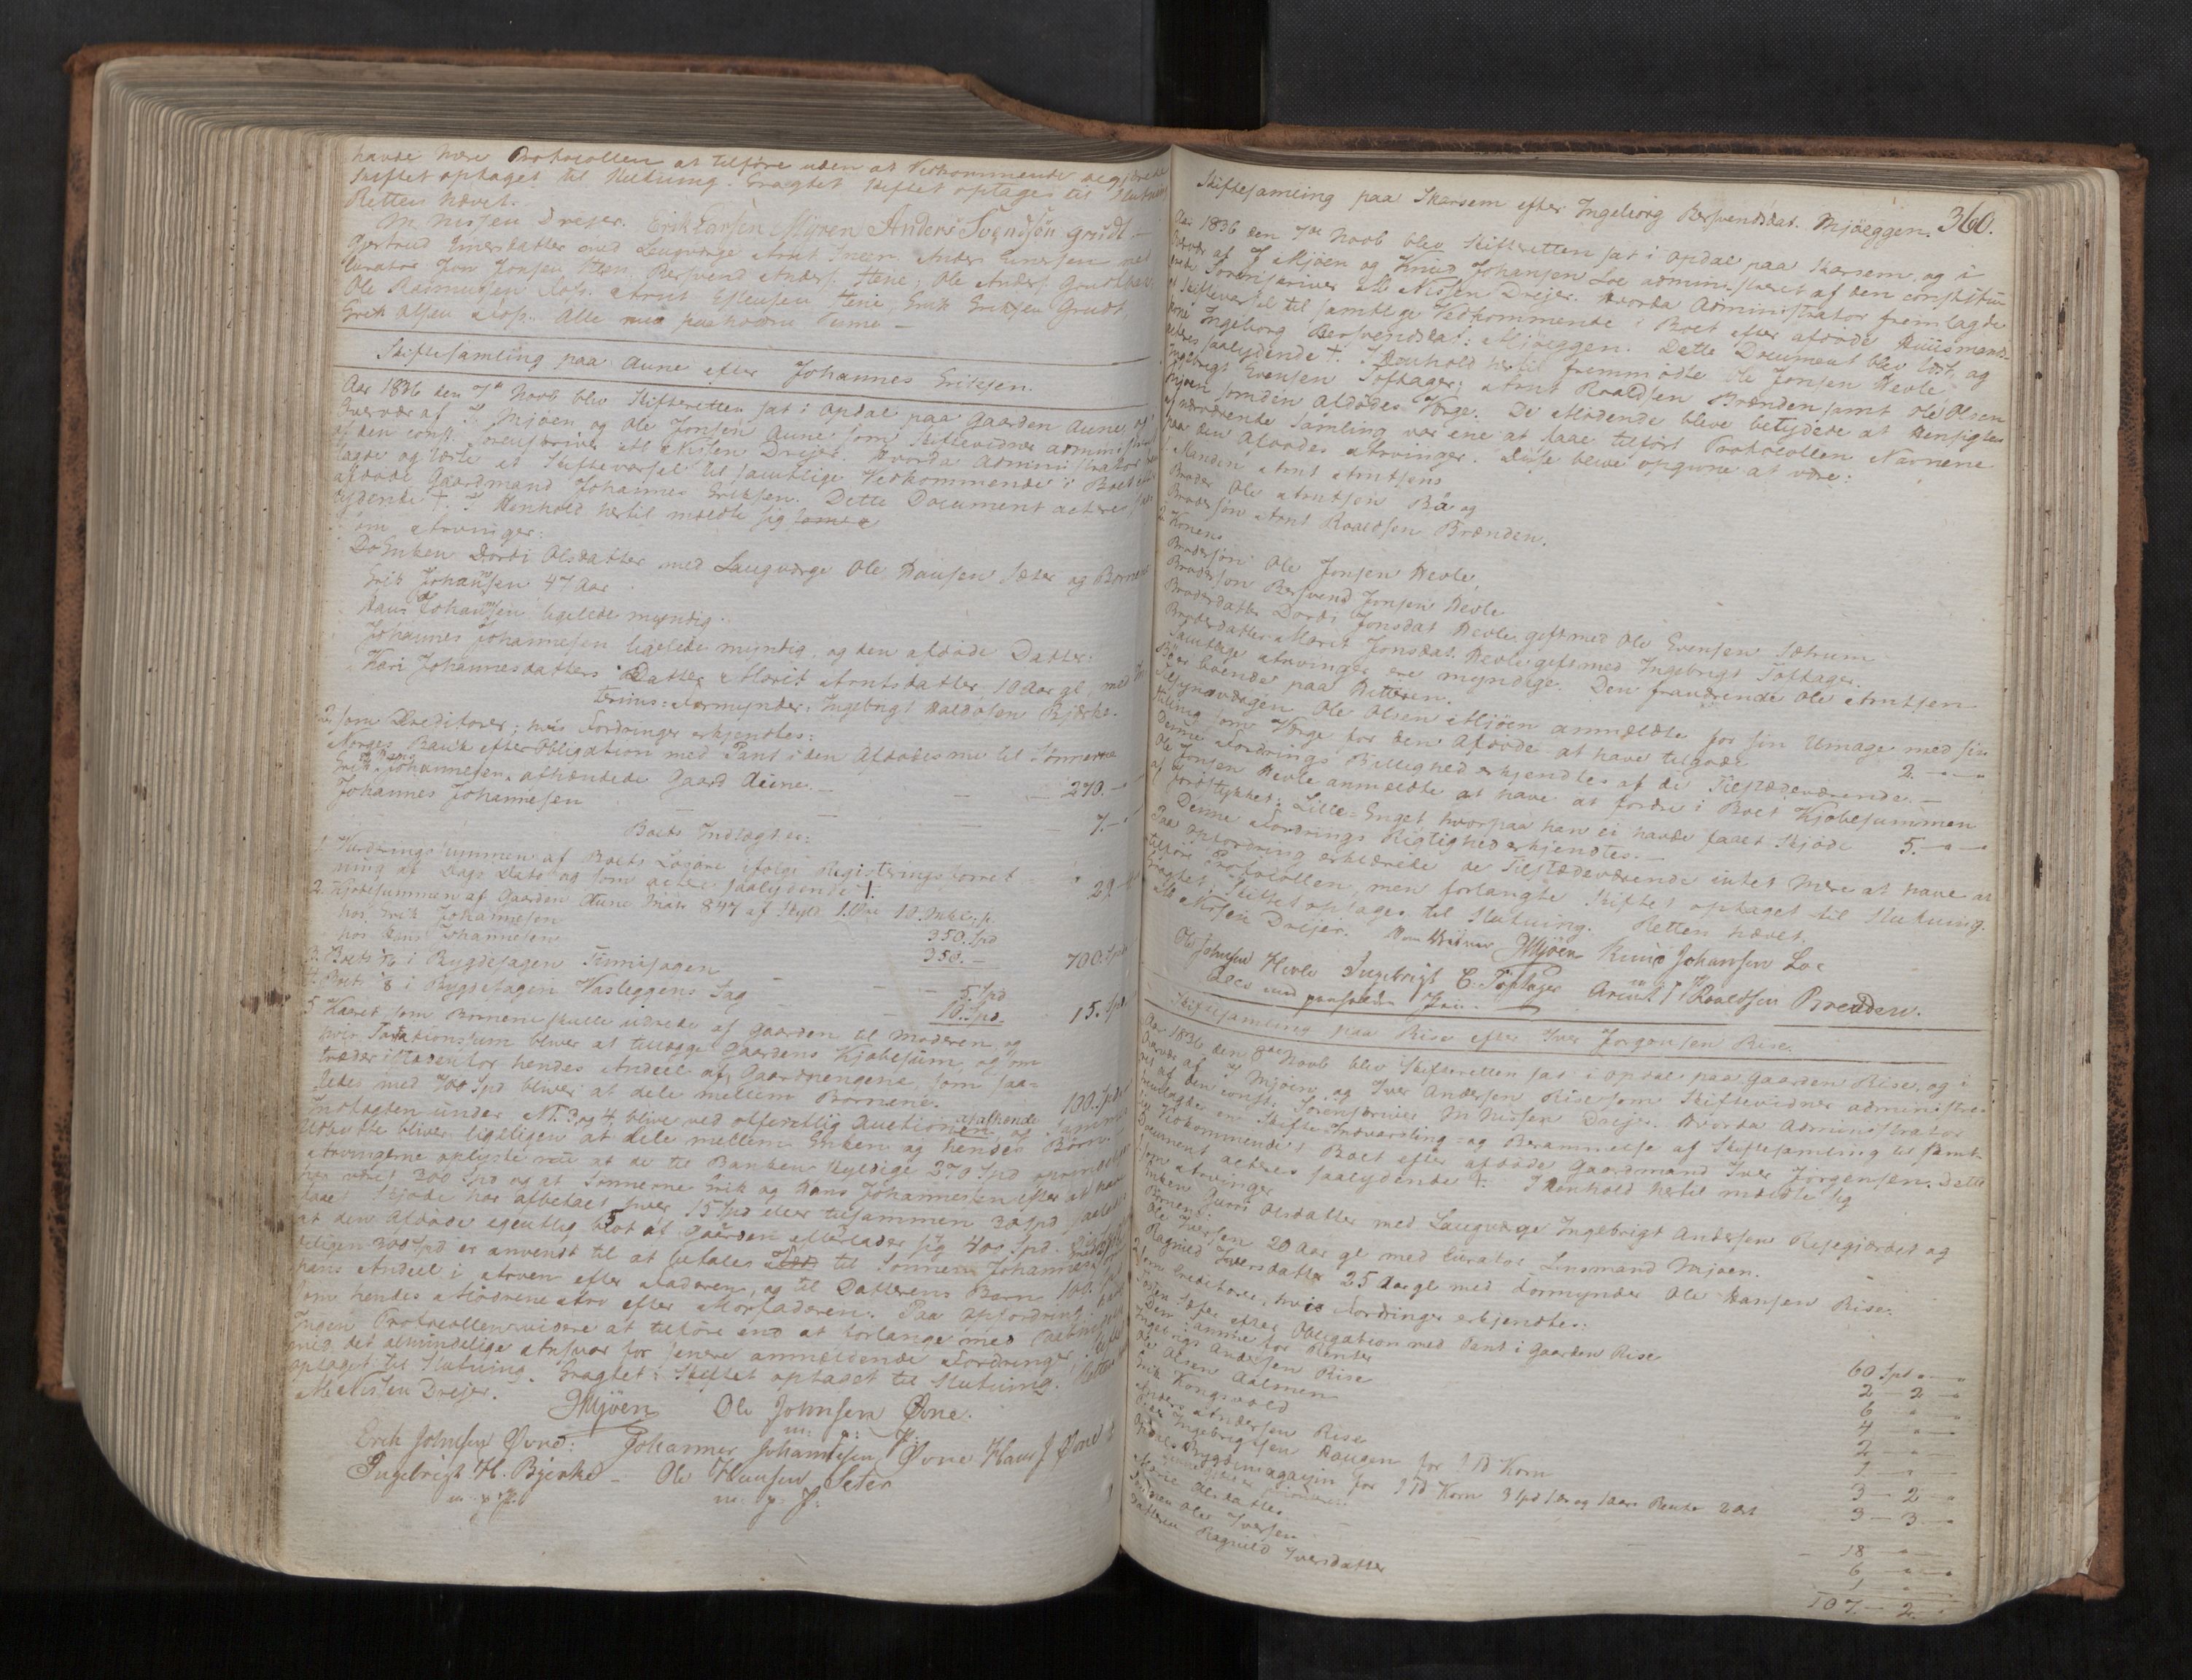 havde mere Protocollen at tilføre uden at Vedkommende begjærede
Skiftet optaget til Slutning. Eragtet Skiftet optages til Slutning
Retten hævet.
M Nissen Drejer. Erik Larsen Mjøen Anders Svendsøn Grudt
Gjertrud Einersdatter med Laugværge Arnt Sneen. Anders Einersen med
Curator Jon Jonsen Hæn. Bersvend Anders. Hæne, Ole Anders. Grudt
Ole Rasmussen Arnt Estensen Hæne, Erik Eriksen Grudt
Erik Olsen Alle med paaholden Penne —
Skiftesamling paa Aune efter Johannes Eriksen.
Aar 1836 den 7de Novb blev Skifteretten sat i Opdal paa Gaarden Aune, og i
Overvær af J Mjøen og Ole Jonsen Aune som Skiftevidner administreret
af den const. Sorenskriver M Nissen Drejer. Hvorda Administrator frem
lagde og læste et Skiftevarsel til samtlige Vedkommende i Boet efter
afdøde Gaardmand Johannes Eriksen. Dette Document acteres saa
lydende †. I Henhold hertil meldte sig
som Arvinger:
Enken Dordi Olsdatter med Laugværge Ole Hansen Sæter og Børnene
Erik Johannesen 47 Aar
Hans Johannesen ligelede myndig.
Johannes Johannesen ligelede myndig, og den afdøde Datter:
Kari Johannesdatters Datter Marit Arntsdatter, 10 Aar gl, med In
terims-Formynder; Ingebrigt Haldosen Bjærke.
2. som Creditorer; hvis Fordringer erkjendtes:
Norges Bank efter Obligation med Pant i den Afdødes nu til Sønnerne
Erik og Hans Johannesen afhændede Gaard Aune. — 270. —
Johannes Johannesen — 7. —
Boets Indtægter:
1. Vurderingssummen af Boets Løsøre ifølge Registeringsforret
ning af Dags Dato og som acteres saalydende †. 29.
2. Kjøbesummen af Gaarden Aune Matr 847 af Skyld 1 Øre 10 Mkl;
hos Erik Johannesen 350. Spd
hos Hans Johannesen 350. — 700. Spd
3. Boets i Bygdesagen Finnisagen — 5 Spd
4. Boets 1/8 i Bygdesagen Vasleggens Sag 10. Spd. 15. Spd
5. Kaaret, som Børnene skulle udrede af Gaarden til Moderen, og
hvis Taxationssum bliver at tillægge Gaardens Kjøbesum, og som
træder istædenfor hendes Andeel af Gaardpengene, som saa-
ledes med 700 Spd bliver at dele mellem Børnene. 100. Spd
Indtægten under No. 3 og 4 blive ved offentlig Auction at afhænde
Udbytte bliver ligeligen at dele mellem Enken og hendes Børn.
Arvingerne oplyste nu at de til Banken skyldige 270 Spd oprindeligen
har været 300 Spd og at Sønnerne Erik og Hans Johannesen efter at have
faaet Skjøde har afbetalt hver 15 Spd eller tilsammen 30 Spd saaledes
at den Afdøde egentlig blot af Gaarden efterlader sig 400 Spd.
deligen 300 Spd er anvendt til at betales til Sønnen Johannes
hans Andeel i Arven efter Faderen, og til Datterens Barn 100
som hendes Mødrene Arv efter Morfaderen. Paa Opfordring havde
Ingen Protocollen videre at tilføre end at forlange med
mid det almindelige Ansvar for senere anmeldende Fordringer Skiftet
optaget til Slutning. Eragtet: Skiftet optaget til Slutning. Retten
M Nissen Drejer. JMjøen Ole Johnsen Øvne.
m: p: P:
Erik Johnsen Øvne: Johannes Johannesen Øvne Hans J Øvne
Ingebrigt H. Bjerke — Ole Hansen Seter
m. p. P. m. p. P:
Skiftesamling paa Skarsem efter Ingeborg Bersvendsdat. Mjøeggen. 360.
Aar 1836 den 7de Novb blev Skifteretten sat i Opdal paa Skarsem, og i
Overvær af J Mjøen og Knud Johansen Loe administreret af den constitu-
erede Sorenskriver M Nissen Drejer. Hvorda Administrator fremlagde
et Skiftevarsel til samtlige Vedkommende i Boet efter afdøde Huusmands-
kone Ingeborg Bersvendsdat: Mjøeggen. Dette Document blev læst, og
acteres saalydende †. I Henhold hertil fremmødte Ole Jonsen Hevle,
Ingebrigt Evensen Toftager; Arnt Roaldsen Brænden samt Ole Olsen
Mjøen som den Afdødes Værge. De Mødende bleve betydede at Hensigten
af nærværende Samling var ene at faae tilført Protocollen Navnene
paa den Afdødes Arvinger. Disse bleve opgivne at være:
1. Manden Arnt Arntsens
Broder Ole Arntsen Bø og
Brodersøn Arnt Roaldsen Brænden.
2. Konens
Brodersøn Ole Jonsen Hevle,
Brodersøn Bersvend Jonsen Hevle
Broderdatter Dordi Jonsdat Hevle gift med Ole Evensen Sætrum
Broderdatter Marit Jonsdat. Hevle gift med Ingebrigt Toftager.
Samtlige Arvinger ere myndige. Den fraværende Ole Arntsen
Bø er boende paa Hitteren.
Tilsynsværgen Ole Olsen Mjøen anmeldte for sin Umage med sin
Stilling som Værge for den Afdøde at have tilgode 2. — " — "
Denne Fordrings Billighed erkjendtes af de Tilstædeværende. —
Ole Jonsen Hevle anmeldte at have at fordre i Boet Kjøbesummen
af Jordstykket: Lille-Enget hvorpaa han ei havde faaet Skjøde 5. — " — "
Denne Fordrings Rigtighed erkjendtes. —
Paa Opfordring erklærede de Tilstædeværende intet mere at have at
tilføre Protocollen, men forlangte Skiftet optaget til Slutning.
Eragtet: Skiftet optages til Slutning. Retten hævet.
M Nissen Drejer. Som Vidner JMjøen Knud Johansen Loe
Ole Johnsen Hevle Ingebrigt E. Toftager Arent Roaldsen Brenden.
alle med paaholden Pen.
Skiftesamling paa Rise efter Iver Jørgensen Rise.
Aar 1836 den 8de Novb blev Skifteretten sat i Opdal paa Gaarden Rise, og i
Overvær af J Mjøen, og Iver Andersen Rise som Skiftevidner administre-
ret af den const. Sorenskriver M Nissen Drejer. Hvorda Administrator
fremlagde en Skifte-Indvarsling- og Berammelse af Skiftesamling til samt-
lige Vedkommende i Boet efter afdøde Gaardmand Iver Jørgensen. Dette
Document acteres saalydende †. I Henhold hertil meldte sig
som Arvinger
Enken Guro Olsdatter med Laugværge Ingebrigt Andersen Risegjærdet og
Børnene
Ole Iversen 20 Aar gl med Curator Lensmand Mjøen.
Ragnild Iversdatter 25 Aar gl med Formynder Ole Hansen Rise.
2. som Creditorer, hvis Fordringer erkjendtes:
Sæter efter Obligation med Pant i Gaarden Rise 60 Spd " — "
Den samme for Renter 2 — 2 — "
Ingebrigt Andersen Rise 6 — " — "
Ole Olsen Aalmen 4 — " —
Erik Kongsvold 2 — " —
Anders Andersen Rise 1 — " —
Iver Ingebrigtsen Haugen for 1 Td Korn 3 — 2 — "
Opdals Bygdemagazin for 1 Td Korn 3 Spd 3 — 3 — "
Marie Olsdatter 18 — "
Sønnen Ole Iversen 6 — " — "
Datteren Ragnild Iversdatter 1 — "
107. — 2. "